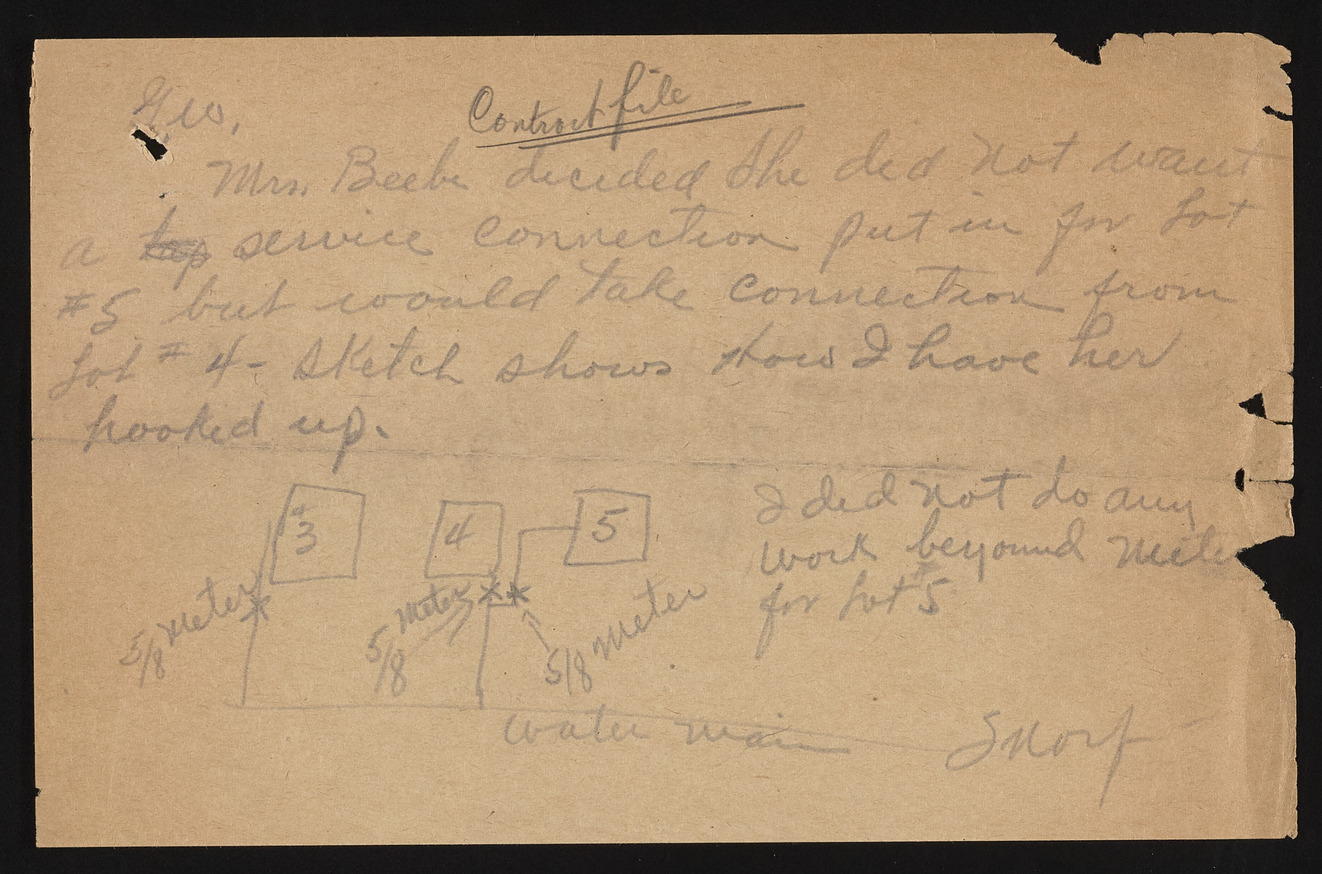 Contract file
Geo,
Mrs. Beebe decided she did not want
a tap service connection put in for Lot
#5 but would take connection from
Lot # 4 - sketch shows How I have her
hooked up.
3
4
5
I did not do any
work beyound meter
for Lot #5
5/8 Meter
5/8 Meter
5/8 Meter
water main
Snorf